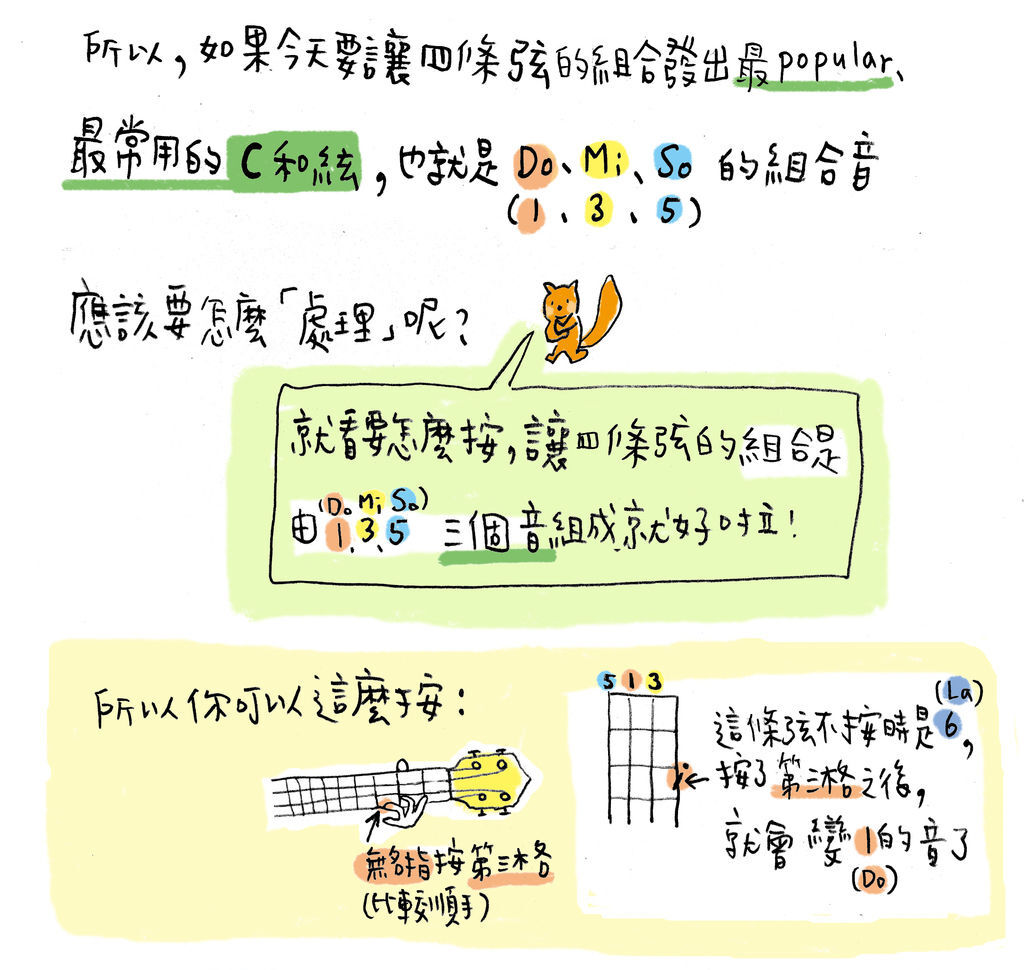 所以，如果今天要讓四條弦的組合發出最popular、
最常用的C和絃，也就是Do、Mi、So的組合音
(1、3、5)
應該要怎麼「處理」呢？
就看要怎麼按，讓四條弦的組合是
(Do Mi So)
由1、3、5 三個音組成就好啦！
所以你可以這麼按：
無名指按第三格
(比較順手)
5 1 3
(La)
這條弦不按時是6，
i ← 按了第三格之後，
就會變1的音了
(Do)